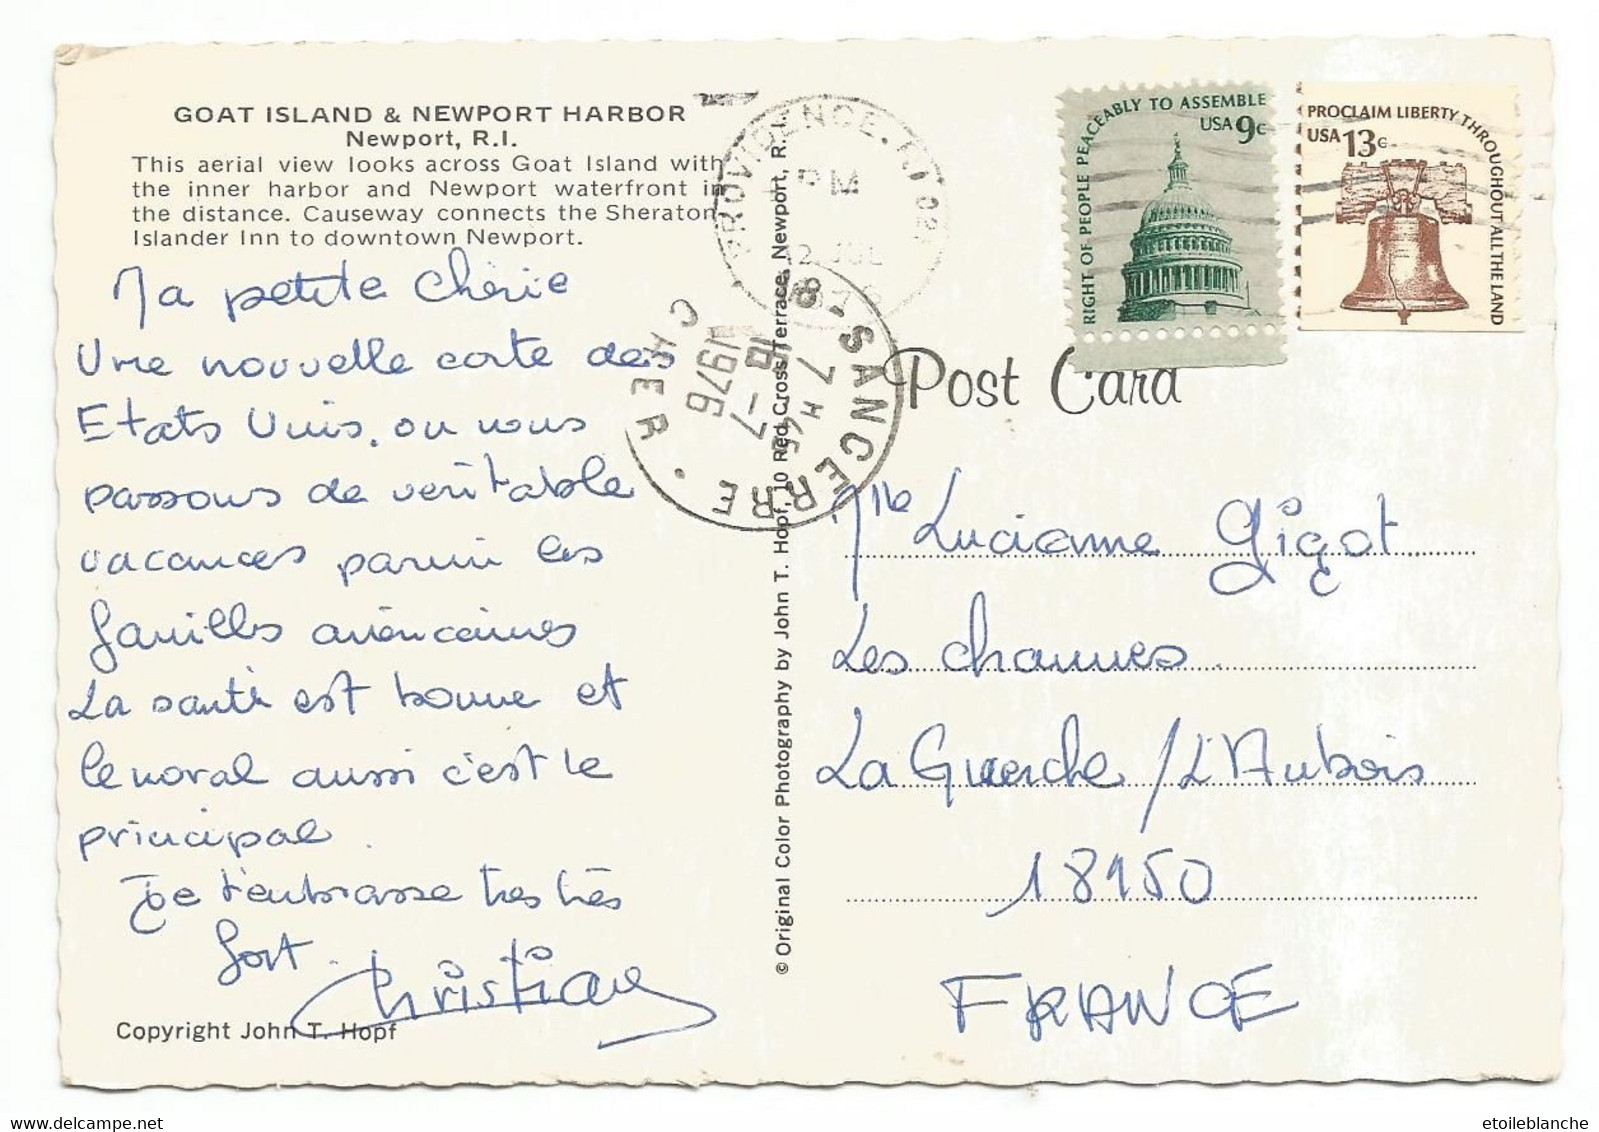 GOAT ISLAND & NEWPORT HARBOR
Newport, R.I.
This aerial view looks across Goat Island with
the inner harbor and Newport waterfront in
the distance. Causeway connects the Sheraton
Islander Inn to downtown Newport.
Ma petite Chérie
Une nouvelle carte des
Etats Unis, ou nous
passons de véritable
vacances parmi les
familles américaines
La santé est bonne et
le moral aussi c'est le
principal.
Je t'embrasse très très
fort.
Christian
Copyright John T. Hopf
© Original Color Photography by John T. Hopf, 10 Red Cross Terrace, Newport, R.I.
PROVIDENCE, RI 029
PM
2 JUL
1976
SANCERRE
7 H 45
10 -7
1976
CHER
RIGHT OF PEOPLE PEACEABLY TO ASSEMBLE
USA 9c
PROCLAIM LIBERTY THROUGHOUT ALL THE LAND
USA 13c
Post Card
Mlle Lucienne Gigot
Les Chaumes.
La Guerche /L'Aubois
18150
FRANCE
etoileblanche